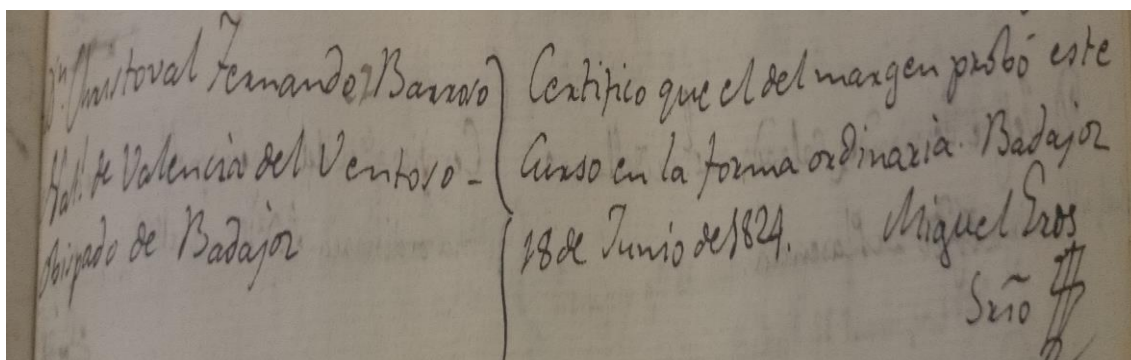 Dn. Christoval Fernandez Barroso
Natl. de Valencia del Ventoso -
Obispado de Badajoz
Certifico que el del margen probó este
Curso en la forma ordinaria. Badajoz
18 de Junio de 1824. Miguel Eros
Srio